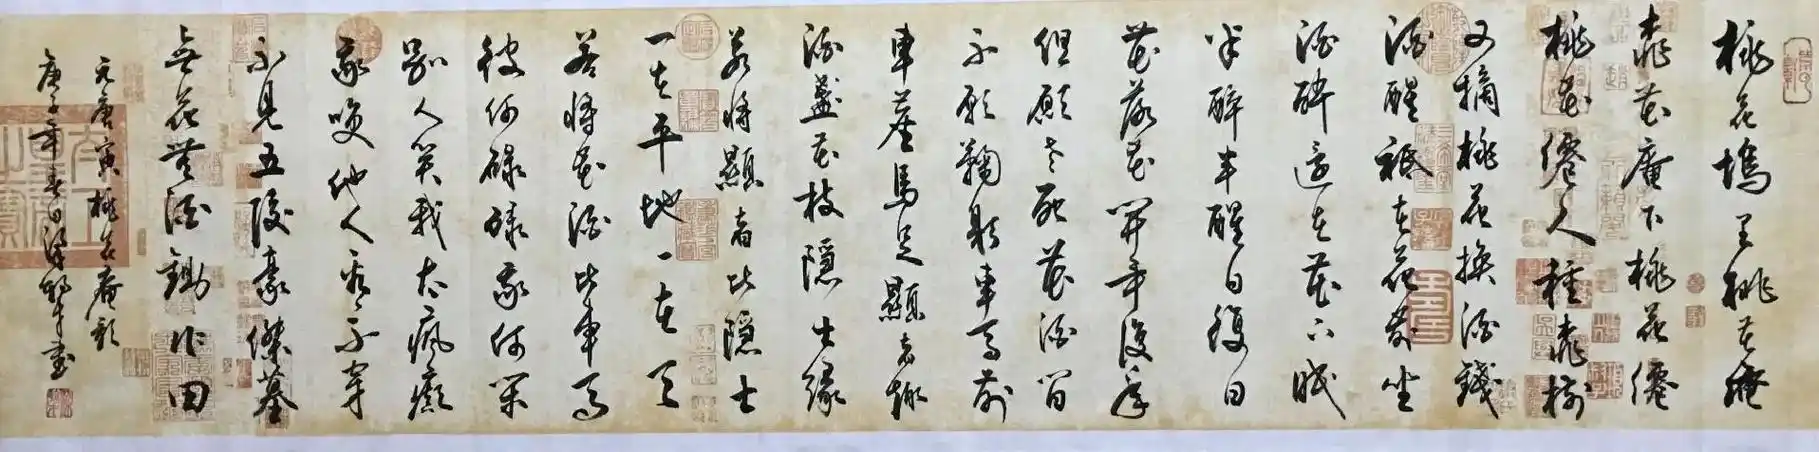 桃花塢里桃花庵
桃花庵下桃花僊
桃花僊人種桃樹
又摘桃花換酒錢
酒醒祗在花前坐
酒醉還在花下眠
半醉半醒日復日
花落花開年復年
但願老死花酒間
不願鞠躬車馬前
車塵馬足顯者趣
酒盞花枝隱士緣
若將顯者比隱士
一在平地一在天
若將花酒比車馬
彼何碌碌我何閑
別人笑我太瘋癲
我咲他人看不穿
不見五陵豪傑墓
無花無酒鋤作田
元唐寅桃花庵歌
庚子年春日書